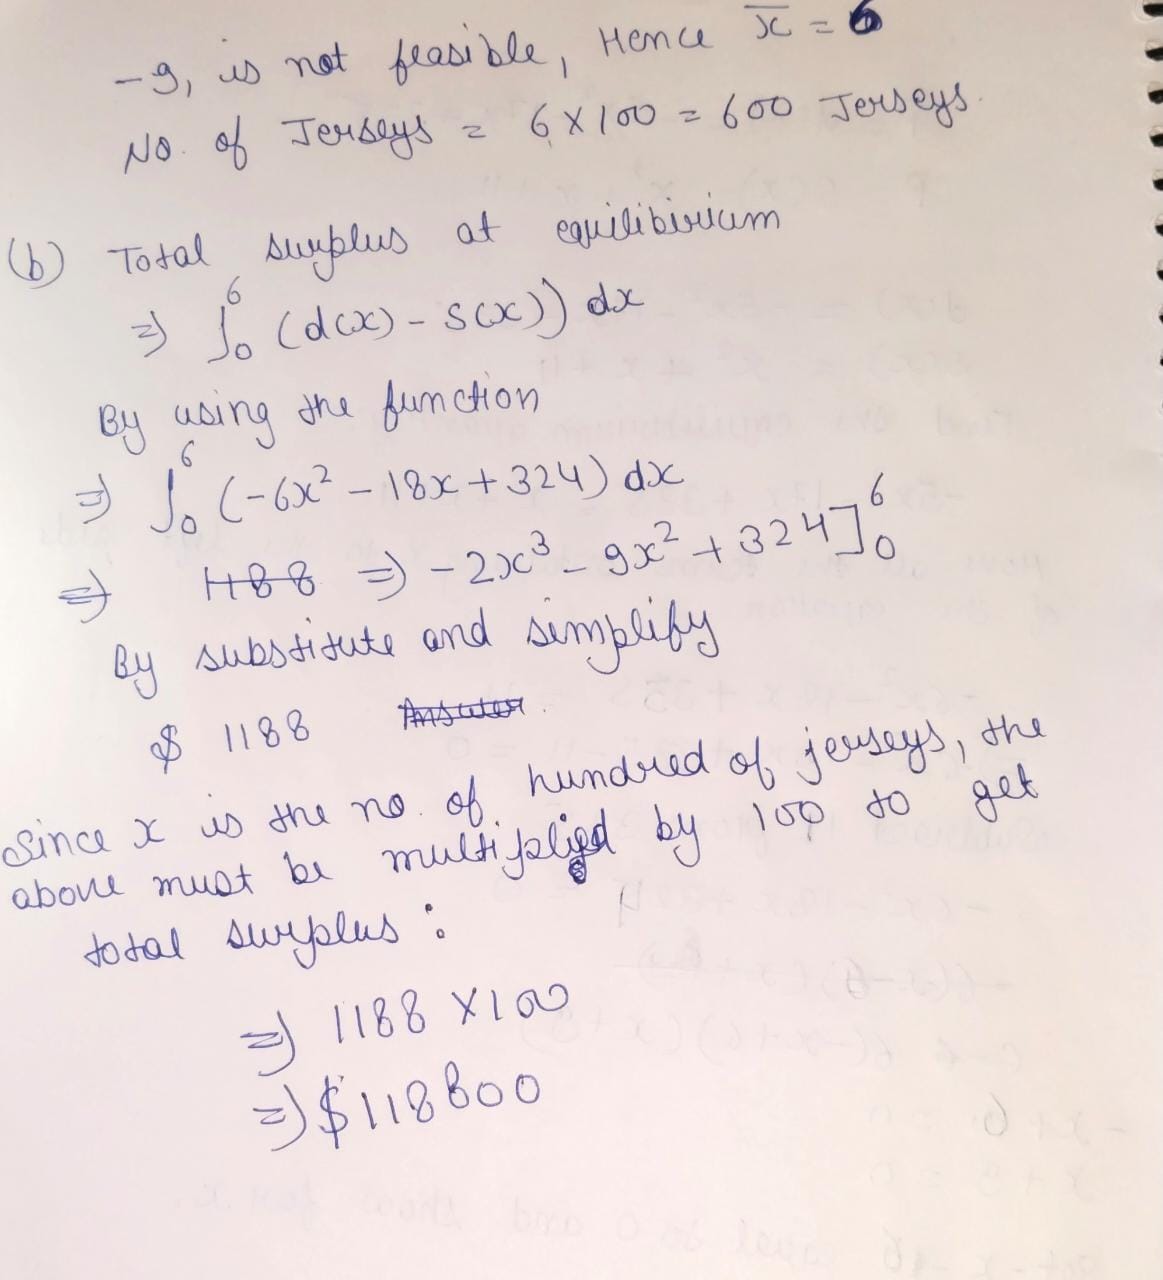 -9, is not feasible, Hence x̅ = 6
No. of Jerseys = 6 x 100 = 600 Jerseys.
(b) Total surplus at equilibirium
⇒ ∫₀⁶ (d(x) - S(x)) dx
By using the function
⇒ ∫₀⁶ (-6x² - 18x + 324) dx
⇒ 1188 ⇒ -2x³ - 9x² + 324]₀⁶
By substitute and simplify
$ 1188 Answer.
Since x is the no. of hundred of jerseys, the
above must be multiplied by 100 to get
total surplus :
⇒ 1188 X 100
⇒ $118800